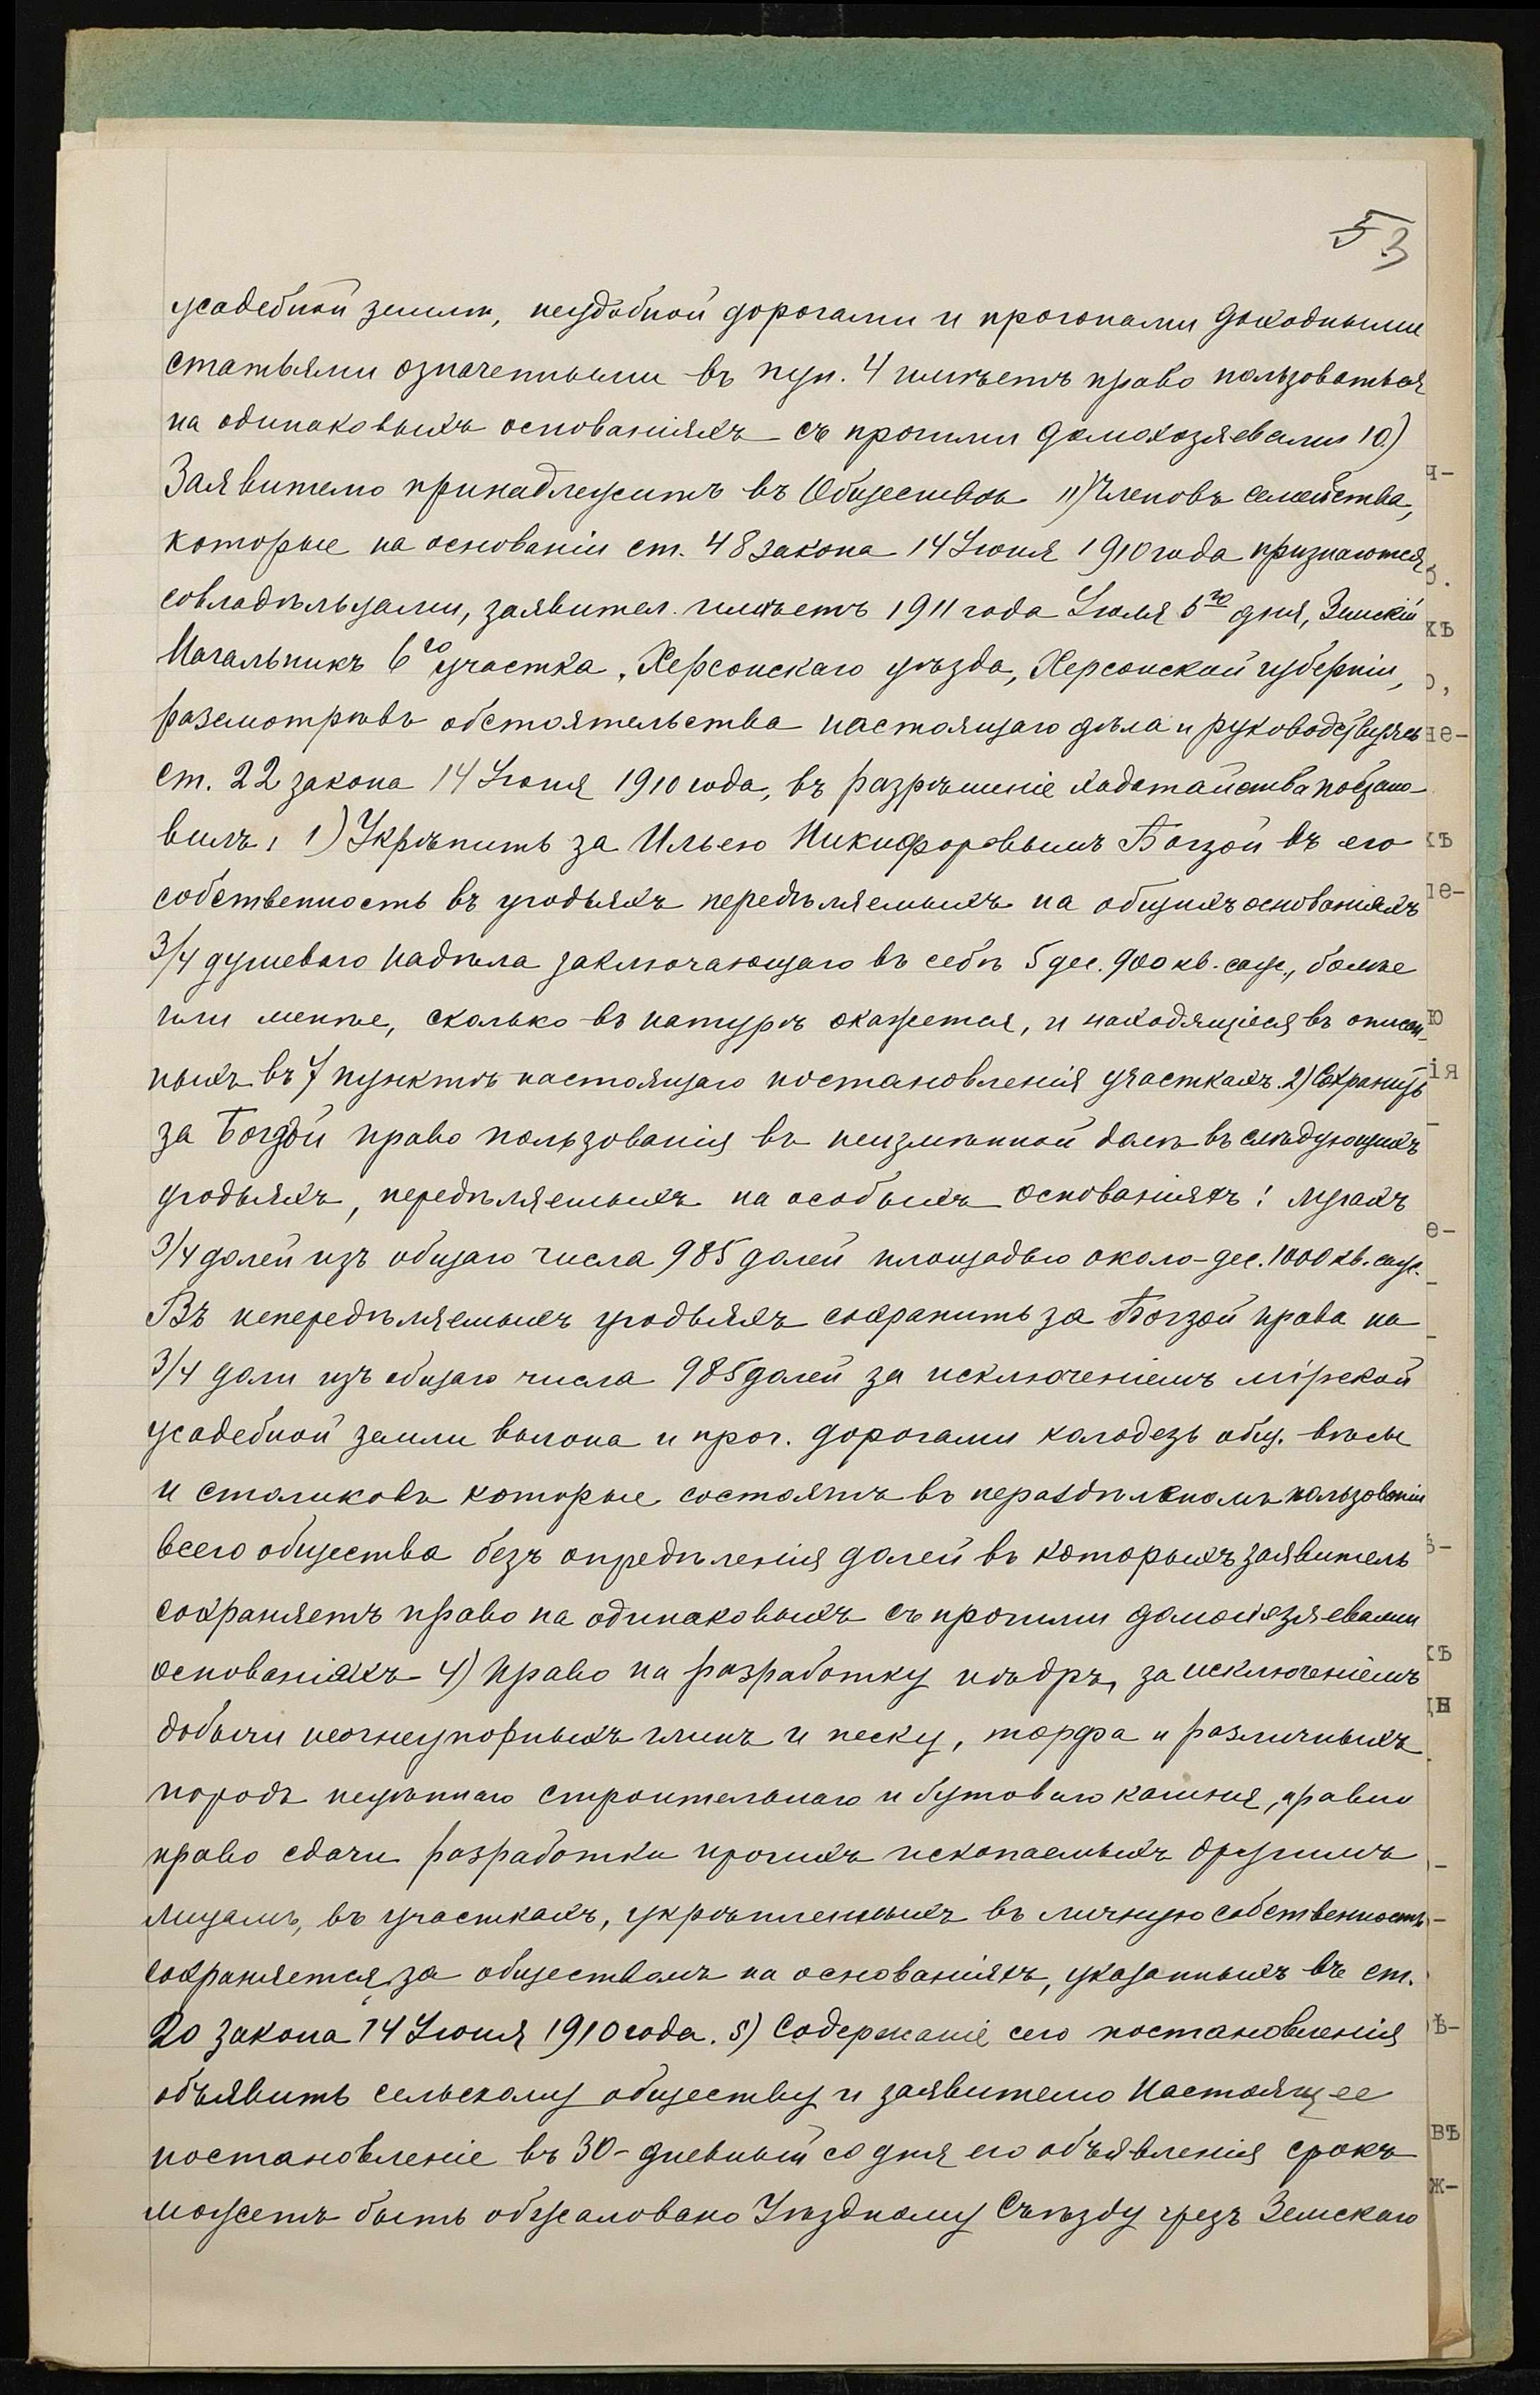 53
усадебной земли, неудобной дорогами и прогонами доходными
статьями означенными въ пун. 4 имѣетъ право пользоваться
на одинаковыхъ основаніяхъ съ прочими домохозяевами 10)
Заявителю принадлежитъ въ Обществѣ 11) Членовъ семейства,
которые на основаніи ст. 48 закона 14 Іюня 1910 года признаются
совладѣльцами, заявител. имѣетъ 1911 года Іюля 5го дня, Земскій
Начальникъ 6го участка, Херсонскаго уѣзда, Херсонской губерніи,
разсмотрѣвъ обстоятельства настоящаго дѣла и руководствуясь
ст. 22 закона 14 Іюня 1910 года, въ разрѣшеніе ходатайства постано-
вилъ: 1) Укрѣпить за Ильею Никифоровымъ Богзой въ его
собственность въ угодьяхъ передѣляемыхъ на общихъ основаніяхъ
3/4 душеваго надѣла заключающаго въ себѣ 5 дес. 900 кв. саж., болѣе
или менѣе, сколько въ натурѣ окажется, и находящіеся въ описан-
ныхъ въ 7 пунктѣ настоящаго постановленія участкахъ. 2) Сохранить
за Богзой право пользованія въ неизмѣнной долѣ въ слѣдующихъ
угодьяхъ, передѣляемыхъ на особыхъ основаніяхъ: лугахъ
3/4 долей изъ общаго числа 985 долей площадью около - дес. 1000 кв. саж.
Въ непередѣляемыхъ угодьяхъ сохранить за Богзой права на
3/4 доли изъ общаго числа 985 долей за исключеніемъ мірской
усадебной земли выгона и проч. дорогами колодезь общ. вѣсы
и столиковъ которые состоятъ въ нераздѣльномъ пользованіи
всего общества безъ опредѣленія долей въ которыхъ заявитель
сохраняетъ право на одинаковыхъ съ прочими домохозяевами
основаніяхъ 4) Право на разработку нѣдръ, за исключеніемъ
добычи неогнеупорныхъ глинъ и песку, торфа и различныхъ
породъ нецѣннаго строительнаго и бутоваго камня, а равно
право сдачи разработки прочихъ ископаемыхъ другимъ
лицамъ, въ участкахъ, укрѣпленныхъ въ личную собственность
сохраняется за обществомъ на основаніяхъ, указанныхъ въ ст.
20 закона 14 Іюня 1910 года. 5) Содержаніе сего постановленія
объявить сельскому обществу и заявителю Настоящее
постановленіе въ 30-дневный со дня его объявленія срокъ
можетъ быть обжаловано Уѣздному Съѣзду чрезъ Земскаго